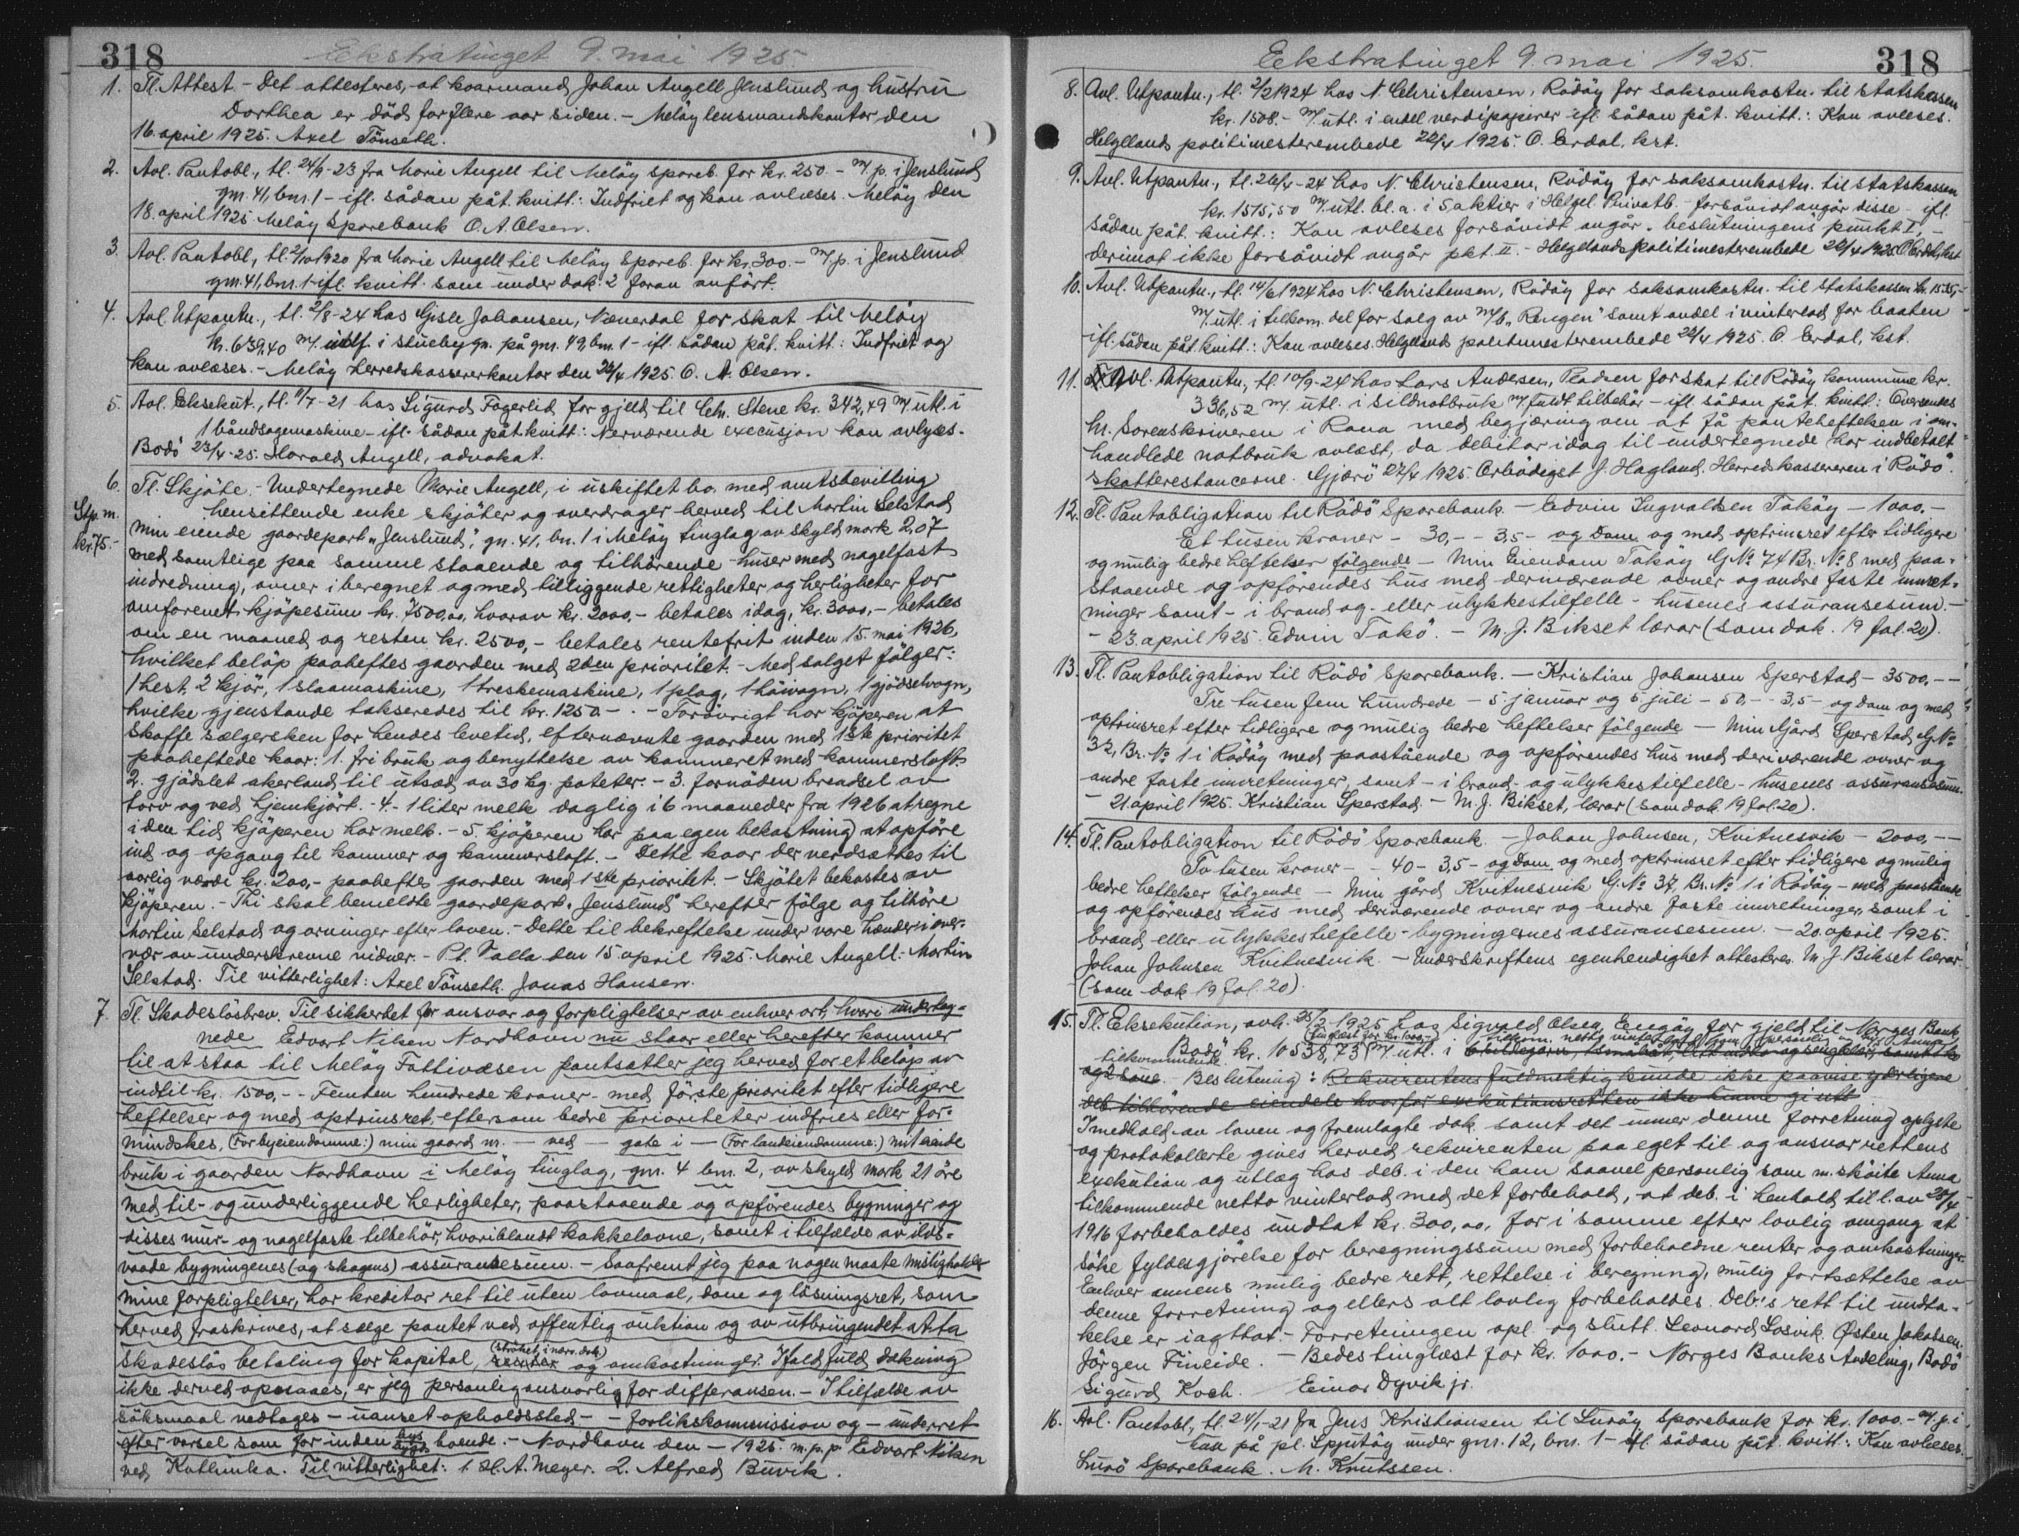 318
Ekstratinget 9. mai 1925.
1. Tl. Attest. - Det attesteres, at kaarmand Johan Angell Jenslund og hustru
Dorthea er död for flere aar siden. - Melöy lensmandskontor, den
16. april 1925. Axel Tönseth.
2. Avl. Pantobl., tl. 24/9-23 fra Marie Angell til Melöy spareb. for kr. 250.- m/p. i Jenslund
gnr. 41, bnr. 1 - ifl. sådan påt. kvitt.: Indfriet og kan avlæses. Melöy den
18. april 1925 Melöy Sparebank O. A. Olsen.
3. Avl. Pantobl., tl. 2/10 1920 fra Marie Angell til Melöy Spareb. for kr. 300.- m/p. i Jenslund
gnr. 41, bnr. 1 - ifl. kvitt. som under dok. 2 foran anført.
4. Avl. Utpantn., tl. 2/8-24 hos Gisle Johansen, Nænerdal for skat til Melöy
kr. 639,40 m/ utl. i stuebygn. på gnr. 49, bnr. 1 - ifl. sådan påt. kvitt.: Indfriet og
kan avlæses. - Melöy Herredskassererkontor den 23/4 1925 O. A. Olsen.
5. Avl. Eksekut., tl. 11/7-21 hos Sigurd Fagerlid for gjeld til Chr. Stene kr. 342,49 m/ utl. i
1 båndsagemaskine - ifl. sådan påt. kvitt.: Nerværende execusjon kan avlyses.
Bodö 23/4-25. Harald Angell, advokat.
6. Tl. Skjöte. - Undertegnede Marie Angell, i uskiftet bo med amtsbevilling
Stp. m.
kr. 75.-
hensittende enke skjöter og overdrager herved til Martin Selstad
min eiende gaardepart "Jenslund", gn. 41, bn. 1 i Melöy tinglag av skyld mark 2,07
med samtlige paa samme staaende og tilhörende huser med nagelfast
indredning, ovner iberegnet og med tilliggende rettigheter og herligheter for
omforenet kjöpesum kr. 7500,00, hvorav kr. 2000,- betales idag, kr. 3000,- betales
om en maaned og resten kr. 2500,- betales rentefrit inden 15. mai 1926,
hvilket belöp paaheftes gaarden med 2den prioritet. - Med salget fölger:
1 hest, 2 kjör, 1 slaamaskine, 1 treskemaskine, 1 plog, 1 höivogn, 1 gjödselvogn,
hvilke gjenstande takseredes til kr. 1250.- - Forövrigt har kjöperen at
skaffe sælgersken for hendes levetid, efternævnte gaarden med 1ste prioritet
paaheftede kaar: 1. fri bruk og benyttelse av kammeret med kammersloft
2. gjödslet akerland til utsæd av 30 kg. poteter. - 3. fornöden brændsel av
torv og ved hjemkjört. - 4. - 1 liter melk daglig i 6 maaneder fra 1926 at regne
i den tid kjöperen har melk. - 5. kjöperen har paa egen bekostning at opföre
ind og opgang til kammer og kammersloft. - Dette kaar der verdsættes til
aarlig værdi kr. 200,- paaheftes gaarden med 1ste prioritet. - Skjötet bekostes av
kjöperen. - Thi skal bemeldte gaardepart "Jenslund" herefter fölge og tilhöre
Martin Selstad og arvinger efter loven. - Dette til bekreftelse under vore hænder i over-
vær av underskrevne vidner. - P.t. Valla den 15. april 1925. Marie Angell. Martin
Selstad. Til vitterlighet: Axel Tönseth. Jonas Hansen.
7. Tl. Skadeslösbrev. Til sikkerhet for ansvar og forpligtelser av enhver art, hvori underteg-
nede Edvart Nilsen Nordhavn nu staar eller herefter kommer
til at staa til Melöy Fattivæsen pantsætter jeg herved for et belöp av
indtil kr. 1500,- - Femten hundrede kroner - med förste prioritet efter tidligere
heftelser og med optrinsret, eftersom bedre prioriteter indfries eller for-
mindskes, (For byeiendomme:) min gaard nr. - ved - gate i - (For landeiendomme:) mit eiende
bruk i gaarden Nordhavn i Melöy tinglag, gnr. 4 bnr. 2, av skyld mark 21 öre
med til- og underliggende herligheter, paastaaende og opförendes bygninger og
disses mur- og nagelfaste tilbehör, hvoriblandt kakkelovne, samt i tilfælde av ilds-
vaade bygningenes (og skogens) assuransesum. - Saafremt jeg paa nogen maate misligholder
mine forpligtelser, har kreditor ret til uten lovmaal, dom og lösningsret, som
herved fraskrives, at sælge pantet ved offentlig auktion og av utbringendet at ta
skadeslös betaling for kapital, renter (ströket i nærv. dok.) og omkostninger. Ifald fuld dækning
ikke derved opnaaes, er jeg personlig ansvarlig for differansen. - I tilfælde av
söksmaal vedtages - uanset opholdssted - - forlikskommission og - underret
efter varsel som for inden bys bygds boende. - Nordhavn den - 1925. m.p.p. Edvart Nilsen
ved Kathinka. Til vitterlighet: 1. H. A. Meyer. 2. Alfred Buvik.
318
Ekstratinget 9. mai 1925.
8. Avl. Utpantn., tl. 2/2 1924 hos N. Christensen, Rödöy for saksomkostn. til statskassen
kr. 1508.- m/ utl. i endel verdipapirer ifl. sådan påt. kvitt.: Kan avleses.
Helgelands politimesterembede 22/4 1925. O. Erdal, kst.
9. Avl. Utpantn., tl. 26/4-24 hos N. Christensen, Rödöy for saksomkostn. til statskassen
kr. 1515,50 m/ utl. bl. a. i 5 aktier i Helgel. Privatb. - forsåvidt angår disse - ifl.
sådan påt. kvitt.: Kan avleses forsåvidt angår beslutningens punkt I, -
derimot ikke forsåvidt angår pkt. II. - Helgelands politimesterembede 22/4 1925 O. Erdal, kst.
10. Avl. Utpantn., tl. 14/6 1924 hos N. Christensen, Rödöy for saksomkostn. til statskassen kr. 1535,-
m/ utl. i tilkom. del for salg av m/b "Rengen" samt andel i vinterlod for baaten
ifl. sådan påt. kvitt.: Kan avleses. Helgelands politimesterembede 22/4 1925. O. Erdal, kst.
11. Avl. Utpantn., tl. 10/9-24 hos Lars Andersen, Rödsen for skat til Rödöy kommune kr.
336,52 m/ utl. i sildnotbruk m/ fuldt tilbehör - ifl. sådan påt. kvitt.: Oversendes
hr. Sorenskriveren i Rana med begjæring om at få pantcheftelsen i om-
handlede notbruk avlæst, da debitor idag til undertegnede har indbetalt
skatterestancerne. Gjærö 22/4 1925. Ærbödigst J. Hagland. Herredskassereren i Rödö.
12. Tl. Pantobligation til Rödö Sparebank - Edvin Ingvaldsen Taköy - 1000.-
Et tusen kroner - 30,- - 3,5 - og Dom og med optrinsret efter tidligere
og mulig bedre heftelser fölgende - Min Eiendom Taköy G.No 74 Br. No 8 med paa-
staaende og opförendes hus med derværende ovner og andre faste innret-
ninger samt - i brand og - eller ulykkestilfelle - husenes assuransesum. -
- 23 april 1925. Edvin Takö. - M. J. Bikset lærer (som dok. 19 fol. 20).
13. Tl. Pantobligation til Rödö Sparebank. - Kristian Johansen Sperstad - 3500,- -
Tre tusen fem hundrede - 5 januar og 5 juli - 50,- - 3,5 - og dom og med
optrinsret efter tidligere og mulig bedre heftelser fölgende - Min Gård Sperstad, G.No
32, Br. No 1 i Rödöy med paastående og opförendes hus med derværende ovner og
andre faste innretninger, samt - i brand- og ulykkestilfelle - husenes assuransesum.
- 21 april 1925. Kristian Sperstad. - M. J. Bikset, lærer (som dok. 19 fol. 20).
14. Tl. Pantobligation til Rödö Sparebank. - Johan Johnsen, Kvitnesvik - 2000,- -
To tusen kroner - - 40 - 3,5 - og dom og med optrinsret efter tidligere og mulig
bedre heftelser fölgende - Min gård Kvitnesvik G. No 37, Br. No 1 i Rödöy - med paastående
og opförendes hus med derværende ovner og andre faste innretninger, samt i
brand, eller ulykkestilfelle - bygningernes assuransesum. - 20. april 1925.
Johan Johnsen Kvitnesvik. - Underskriftens egenhendighet attesteres M. J. Bikset lærer
(som dok 19 fol. 20).
15. Tl. Eksekution, avh. 25/2 1925 hos Sigvald Olsen, Engöy for gjeld til Norges Bank
Bodö kr. 10538,73 (tinglæst for kr. 1000.-) m/ utl. i
tilkommende
Beslutning: Rekvirentens fuldmektig kunde ikke paavise yderligere
deb. tilhörende eiendele hvorfor exekutionsretten ikke kunne gi utl.
I medhold av loven og fremlagte dok. samt det under denne forretning oplyste
og protokollerte gives herved rekvirenten paa eget til og ansvar rettens
exekution og utlæg hos deb. i den ham saavel personlig som m. sköite Anna
tilkommende netto vinterlod med det forbehold, at deb. i henhold til l. av 28/4
1916 forbeholdes undtat kr. 300,00, for i samme efter lovlig omgang at
söke fyldesgjörelse for beregningssum med forbeholdne renter og omkostninger.
Enhver annens mulig bedre rett, rettelse i beregning, mulig fortsættelse av
denne forretning og ellers alt lovlig forbeholdes. Deb.'s rett til undta-
kelse er iagttat. - Forretningen opl. og slutt. Leonard Losvik. Østen Jakobsen.
Jörgen Fineide. - Bedes tinglæst for kr. 1000.- Norges Banks Avdeling, Bodö
Sigurd Koch. Einar Dyvik jr.
16. Avl. Pantobl., tl. 24/1-21 fra Jens Kristiansen til Luröy Sparebank for kr. 1000.- m/ p. i
hus på pl. Spjutöy under gnr. 12, bnr. 1 - ifl. sådan påt. kvitt.: Kan avleses.
Lurö Sparebank. M. Knutssen.